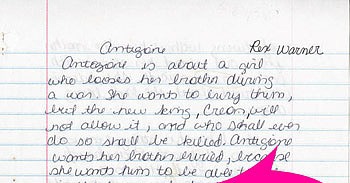 Antigone Rex Warner
Antigone is about a girl
who looses her brother during
a war. She wants to bury them,
but the new king, Creon, will
not allow it, and who shall even
do so shall be killed. Antigone
wants her brother buried, because
she wants him to be able